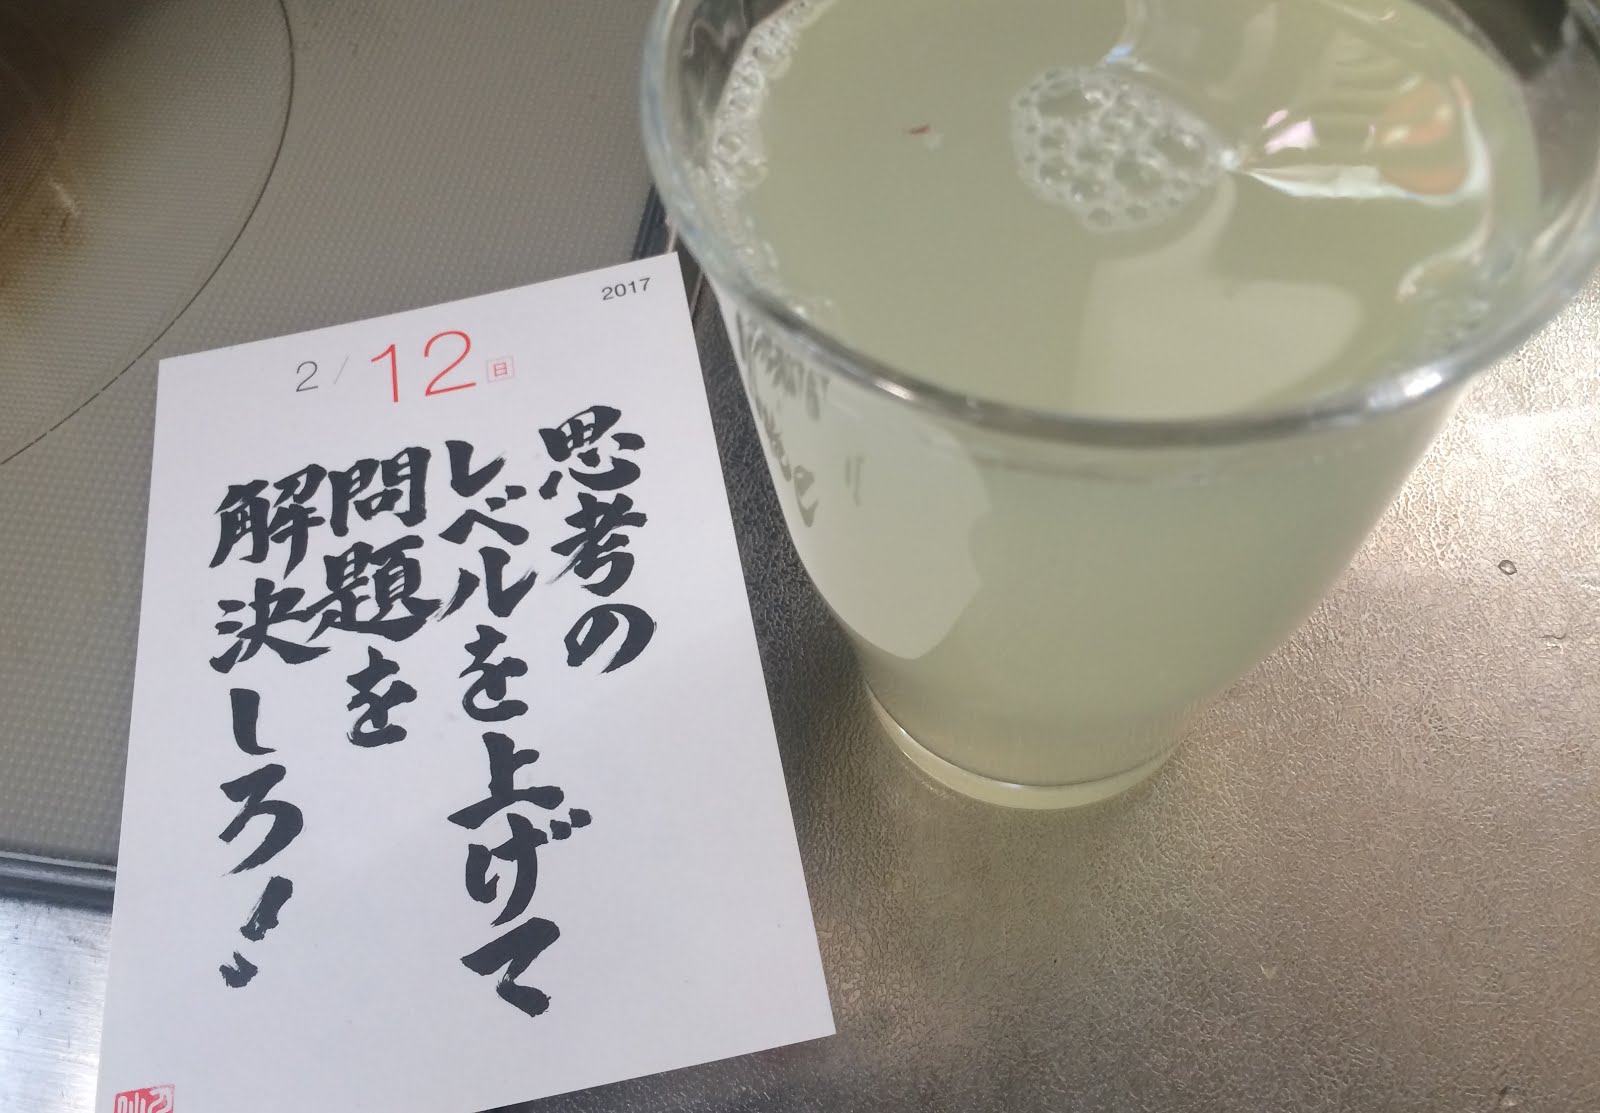 2017
2/12 日
思考の
レベルを上げて
問題を
解決しろ!